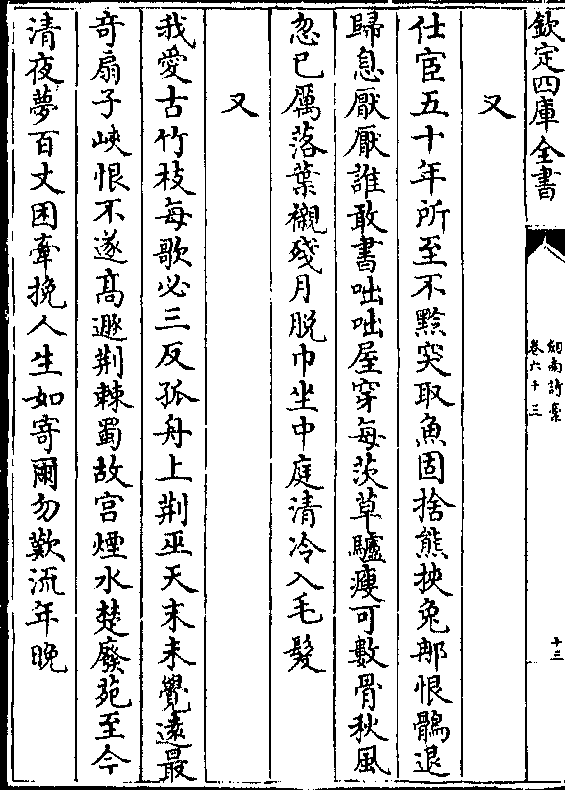 欽定四庫全書
劍南詩藁
卷六十三
十三
又
仕宦五十年所至不黔突取魚固捨熊挾兔那恨鶻退
歸息厭厭誰敢書咄咄屋穿每茨草驢瘦可數骨秋風
忽已厲落葉襯殘月脫巾坐中庭清冷入毛髮
又
我愛古竹枝每歌必三反孤舟上荆巫天末未覺遠最
奇扇子峽恨不遂高遯荆棘蜀故宫煙水楚廢苑至今
清夜夢百丈困牽挽人生如寄爾勿歎流年晚